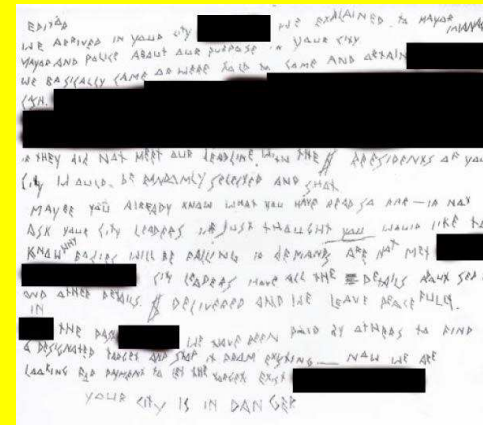 EDITOR
WE ARRIVED IN YOUR CITY WE EXPLAINED TO MAYOR
MAYOR AND POLICE ABOUT OUR PURPOSE IN YOUR CITY.
WE BASICALLY CAME OR WERE TOLD TO COME AND OBTAIN
CASH.
IF THEY DID NOT MEET OUR DEADLINE, THE RESIDENTS OF YOUR
CITY WOULD BE RANDOMLY SELECTED AND SHOT.
MAYBE YOU ALREADY KNOW WHAT YOU HAVE READ SO FAR — IF NOT
ASK YOUR CITY LEADERS WE JUST THOUGHT YOU WOULD LIKE TO
KNOW WHY BODIES WILL BE FALLING IF DEMANDS ARE NOT MET
CITY LEADERS HAVE ALL THE DETAILS
AND OTHER DETAILS. $ DELIVERED AND WE LEAVE PEACEFULLY.
IN
THE PAST WE HAVE BEEN PAID BY OTHERS TO FIND
A DESIGNATED TARGET AND STOP IT FROM EXISTING — NOW WE ARE
LOOKING FOR PAYMENT TO LET THE TARGET EXIST
YOUR CITY IS IN DANGER